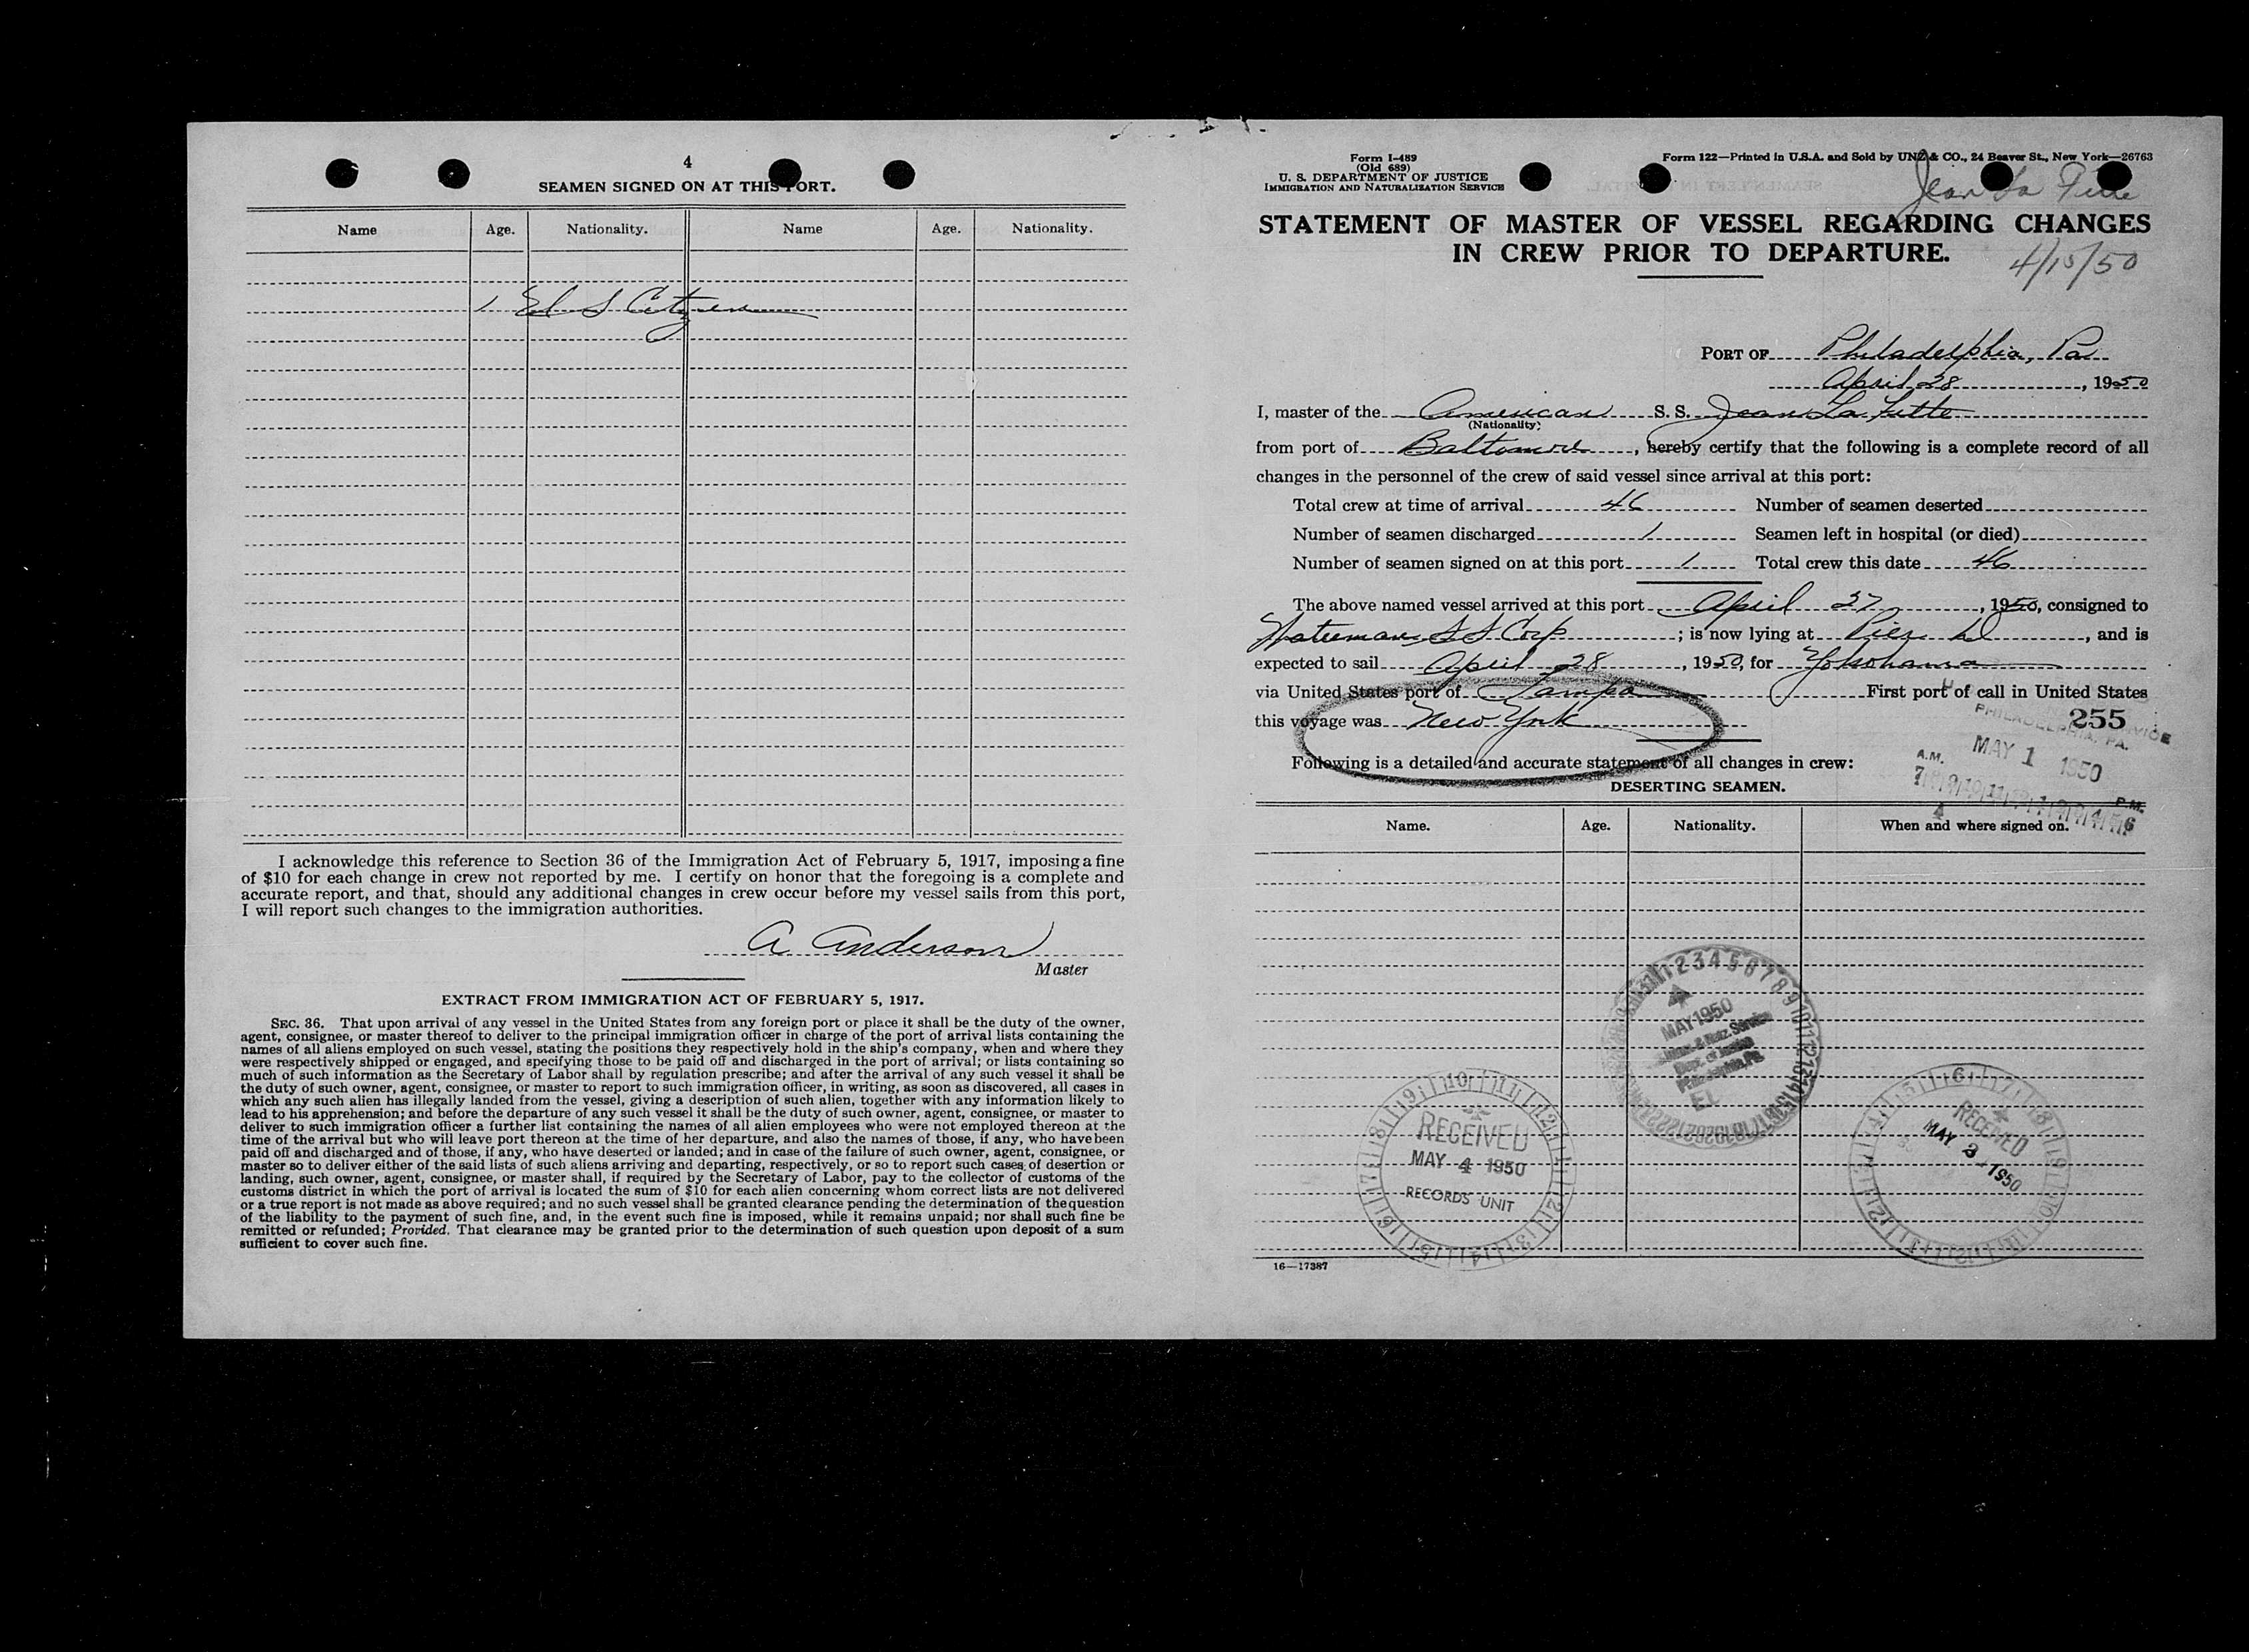 4
SEAMEN SIGNED ON AT THIS PORT.
Name Age. Nationality. Name Age. Nationality.
1 U S Citizen
I acknowledge this reference to Section 36 of the Immigration Act of February 5, 1917, imposing a fine
of $10 for each change in crew not reported by me. I certify on honor that the foregoing is a complete and
accurate report, and that, should any additional changes in crew occur before my vessel sails from this port,
I will report such changes to the immigration authorities.
A Anderson
Master
EXTRACT FROM IMMIGRATION ACT OF FEBRUARY 5, 1917.
SEC. 36. That upon arrival of any vessel in the United States from any foreign port or place it shall be the duty of the owner,
agent, consignee, or master thereof to deliver to the principal immigration officer in charge of the port of arrival lists containing the
names of all aliens employed on such vessel, stating the positions they respectively hold in the ship's company, when and where they
were respectively shipped or engaged, and specifying those to be paid off and discharged in the port of arrival; or lists containing so
much of such information as the Secretary of Labor shall by regulation prescribe; and after the arrival of any such vessel it shall be
the duty of such owner, agent, consignee, or master to report to such immigration officer, in writing, as soon as discovered, all cases in
which any such alien has illegally landed from the vessel, giving a description of such alien, together with any information likely to
lead to his apprehension; and before the departure of any such vessel it shall be the duty of such owner, agent, consignee, or master to
deliver to such immigration officer a further list containing the names of all alien employees who were not employed thereon at the
time of the arrival but who will leave port thereon at the time of her departure, and also the names of those, if any, who have been
paid off and discharged and of those, if any, who have deserted or landed; and in case of the failure of such owner, agent, consignee, or
master so to deliver either of the said lists of such aliens arriving and departing, respectively, or so to report such cases of desertion or
landing, such owner, agent, consignee, or master shall, if required by the Secretary of Labor, pay to the collector of customs of the
customs district in which the port of arrival is located the sum of $10 for each alien concerning whom correct lists are not delivered
or a true report is not made as above required; and no such vessel shall be granted clearance pending the determination of the question
of the liability to the payment of such fine, and, in the event such fine is imposed, while it remains unpaid; nor shall such fine be
remitted or refunded; Provided, That clearance may be granted prior to the determination of such question upon deposit of a sum
sufficient to cover such fine.
Form I-489
(Old 689)
U. S. DEPARTMENT OF JUSTICE
IMMIGRATION AND NATURALIZATION SERVICE
Form 122—Printed in U.S.A. and Sold by UNZ & CO., 24 Beaver St., New York—26763
Jean La Fitte
STATEMENT OF MASTER OF VESSEL REGARDING CHANGES
IN CREW PRIOR TO DEPARTURE.
4/15/50
PORT OF Philadelphia, Pa
April 28, 1950
I, master of the American S. S. Jean La Fitte
(Nationality)
from port of Baltimore, hereby certify that the following is a complete record of all
changes in the personnel of the crew of said vessel since arrival at this port:
Total crew at time of arrival 46 Number of seamen deserted
Number of seamen discharged 1 Seamen left in hospital (or died)
Number of seamen signed on at this port 1 Total crew this date 46
The above named vessel arrived at this port April 27, 1950, consigned to
Waterman S S Corp; is now lying at Pier, and is
expected to sail April 28, 1950, for Yokohama
via United States port of Tampa First port of call in United States
this voyage was New York
255
PHILADELPHIA, PA.
MAY 1 1950
A.M. P.M.
Following is a detailed and accurate statement of all changes in crew:
DESERTING SEAMEN.
Name. Age. Nationality. When and where signed on.
MAY 1950
Immig. & Natz. Service
Dept. of Justice
Philadelphia, Pa.
RECEIVED
MAY 4 1950
RECORDS UNIT
RECEIVED
MAY 3 1950
16—17387